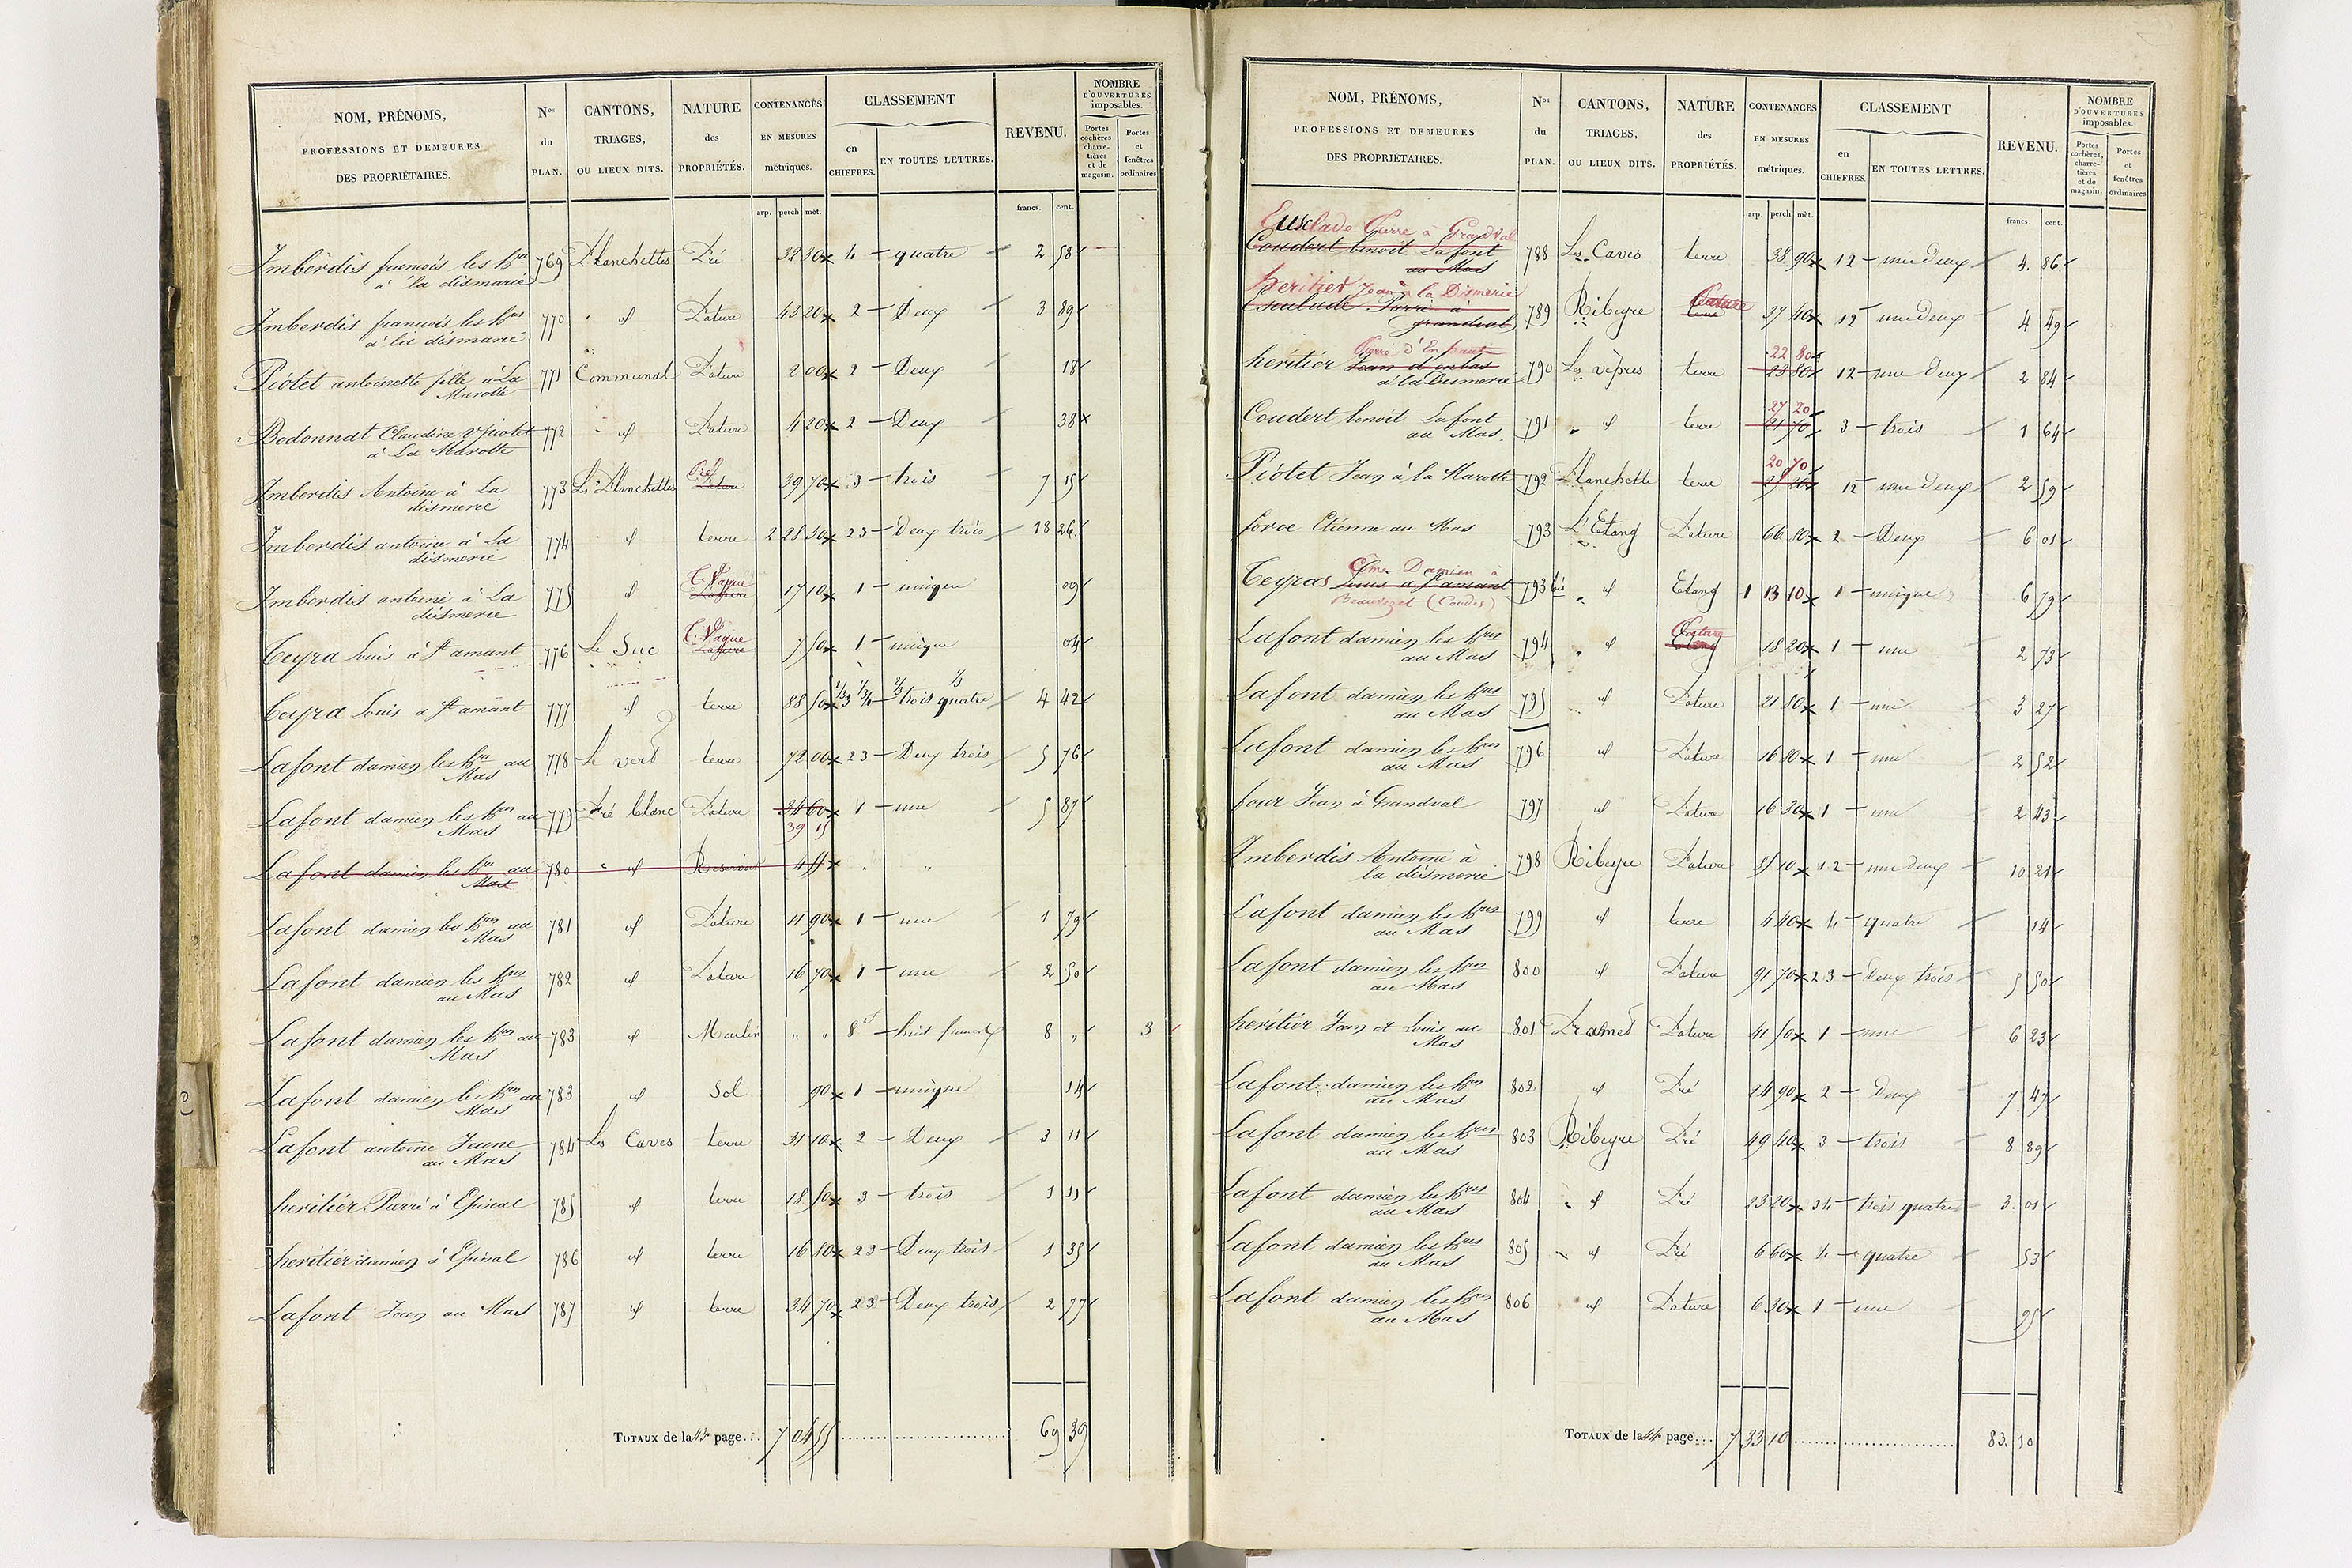 NOM, PRÉNOMS,
PROFESSIONS ET DEMEURES
DES PROPRIÉTAIRES.
Nos du PLAN.
CANTONS, TRIAGES, OU LIEUX DITS.
NATURE des PROPRIÉTÉS.
CONTENANCES EN MESURES métriques.
CLASSEMENT
en CHIFFRES. EN TOUTES LETTRES.
REVENU.
NOMBRE D'OUVERTURES imposables.
Portes cochères charretières et de magasin.
Portes et fenêtres ordinaires
arp. perch mèt. francs. cent.
Imberdis francois les hres 769 Planchettes Pré 32 30 4 quatre 2 58
à la dismarie
Imberdis francois les hres 770 id Pature 43 20 2 Deux 3 89
à la dismarie
Piotet antoinette fille à La 771 Communal Pature 2 00 2 Deux 18
Marotte
Bodonnat Claudine ve piotet 772 id Pature 4 20 2 Deux 38
à La Marotte
Imberdis Antoine à La 773 Les Planchettes Pré Pature 39 70 3 trois 7 15
dismerie
Imberdis antoine à La 774 id terre 2 28 30 23 Deux trois 18 26
dismerie
Imberdis antoine à La 775 id T. Vague Pature 17 10 1 unique 09
dismerie
Teyra Louis à St amant 776 Le Suc T. Vague Pature 7 50 1 unique 04
Teyra Louis à St amant 777 id terre 88 50 2/3 3 1/3 4 2/3 trois 1/3 quatre 4 42
Lafont damien les hres au 778 Le vert terre 72 00 23 Deux trois 5 76
Mas
Lafont damien les hres au 779 Pré blanc Pature 34 60 1 une 5 87
Mas 39 15
Lafont damien les hres au 780 id Réservoir 4 55
Mas
Lafont damien les hres au 781 id Pature 11 90 1 une 1 79
Mas
Lafont damien les hres 782 id Pature 16 70 1 une 2 50
au Mas
Lafont damien les hres au 783 id Moulin " " 8f huit francs 8 " 3
Mas
Lafont damien les hres au 783 id Sol 90 1 unique 14
Mas
Lafont antoine Jeune 784 Les Caves terre 31 10 2 Deux 3 11
au Mas
heritier Pierre à Epinal 785 id terre 18 50 3 trois 1 11
heritier damien à Epinal 786 id terre 16 80 23 Deux trois 1 35
Lafont Jean au Mas 787 id terre 34 70 23 Deux trois 2 77
TOTAUX de la 43e page... 7 04 55 69 39
NOM, PRÉNOMS,
PROFESSIONS ET DEMEURES
DES PROPRIÉTAIRES.
Nos du PLAN.
CANTONS, TRIAGES, OU LIEUX DITS.
NATURE des PROPRIÉTÉS.
CONTENANCES EN MESURES métriques.
CLASSEMENT
en CHIFFRES EN TOUTES LETTRES.
REVENU.
NOMBRE D'OUVERTURES imposables.
Portes cochères, charretières et de magasin.
Portes et fenêtres ordinaires
arp. perch mèt. francs. cent.
Eusclade Pierre à Grandval
Coudert benoit Lafont 788 Les Caves terre 38 90 12 une Deux 4 86
au Mas
heritier Jean à la Dismerie
Esculade Pierre à 789 Ribeyre Pature terre 37 40 12 une deux 4 49
grandval
Pierre d'En haut 22 80
heritier Jean d'enbas 790 Les vèpres terre 23 80 12 une Deux 2 84
à la Dismerie
27 20
Coudert benoit Lafont 791 id terre 21 70 3 trois 1 64
au Mas.
20 70
Piotet Jean à la Marotte 792 Planchette terre 12 une Deux 2 59
force Etienne au Mas 793 L'Etang Pature 66 80 2 Deux 6 01
Côme Damien à
Teyras Louis a St amant 793 bis id Etang 1 13 10 1 unique 6 79
Beaurezet (Coudes)
Lafont damien les hres 794 id Pature Etang 18 20 1 une 2 73
au Mas
Lafont damien les hres 795 id Pature 21 80 1 une 3 27
au Mas
Lafont damien les hres 796 id Pature 16 80 1 une 2 52
au Mas
four Jean à Grandval 797 id Pature 16 30 1 une 2 43
Imberdis Antoine à 798 Ribeyre Pature 85 10 1 2 une deux 10 21
la dismerie
Lafont damien les hres 799 id terre 4 40 4 quatre 14
au Mas
Lafont damien les hres 800 id Pature 91 70 2 3 Deux trois 5 50
au Mas
heritier Jean et Louis au 801 Pramet Pature 41 50 1 une 6 23
Mas
Lafont damien les hres 802 id Pré 24 90 2 Deux 7 47
au Mas
Lafont damien les hres 803 Ribeyre Pré 49 40 3 trois 8 89
au Mas
Lafont damien les hres 804 id Pré 23 20 34 trois quatre 3 01
au Mas
Lafont damien les hres 805 id Pré 6 60 4 quatre 53
au Mas
Lafont damien les hres 806 id Pature 6 30 1 une 95
au Mas
TOTAUX de la 44e page... 7 33 10 83 10